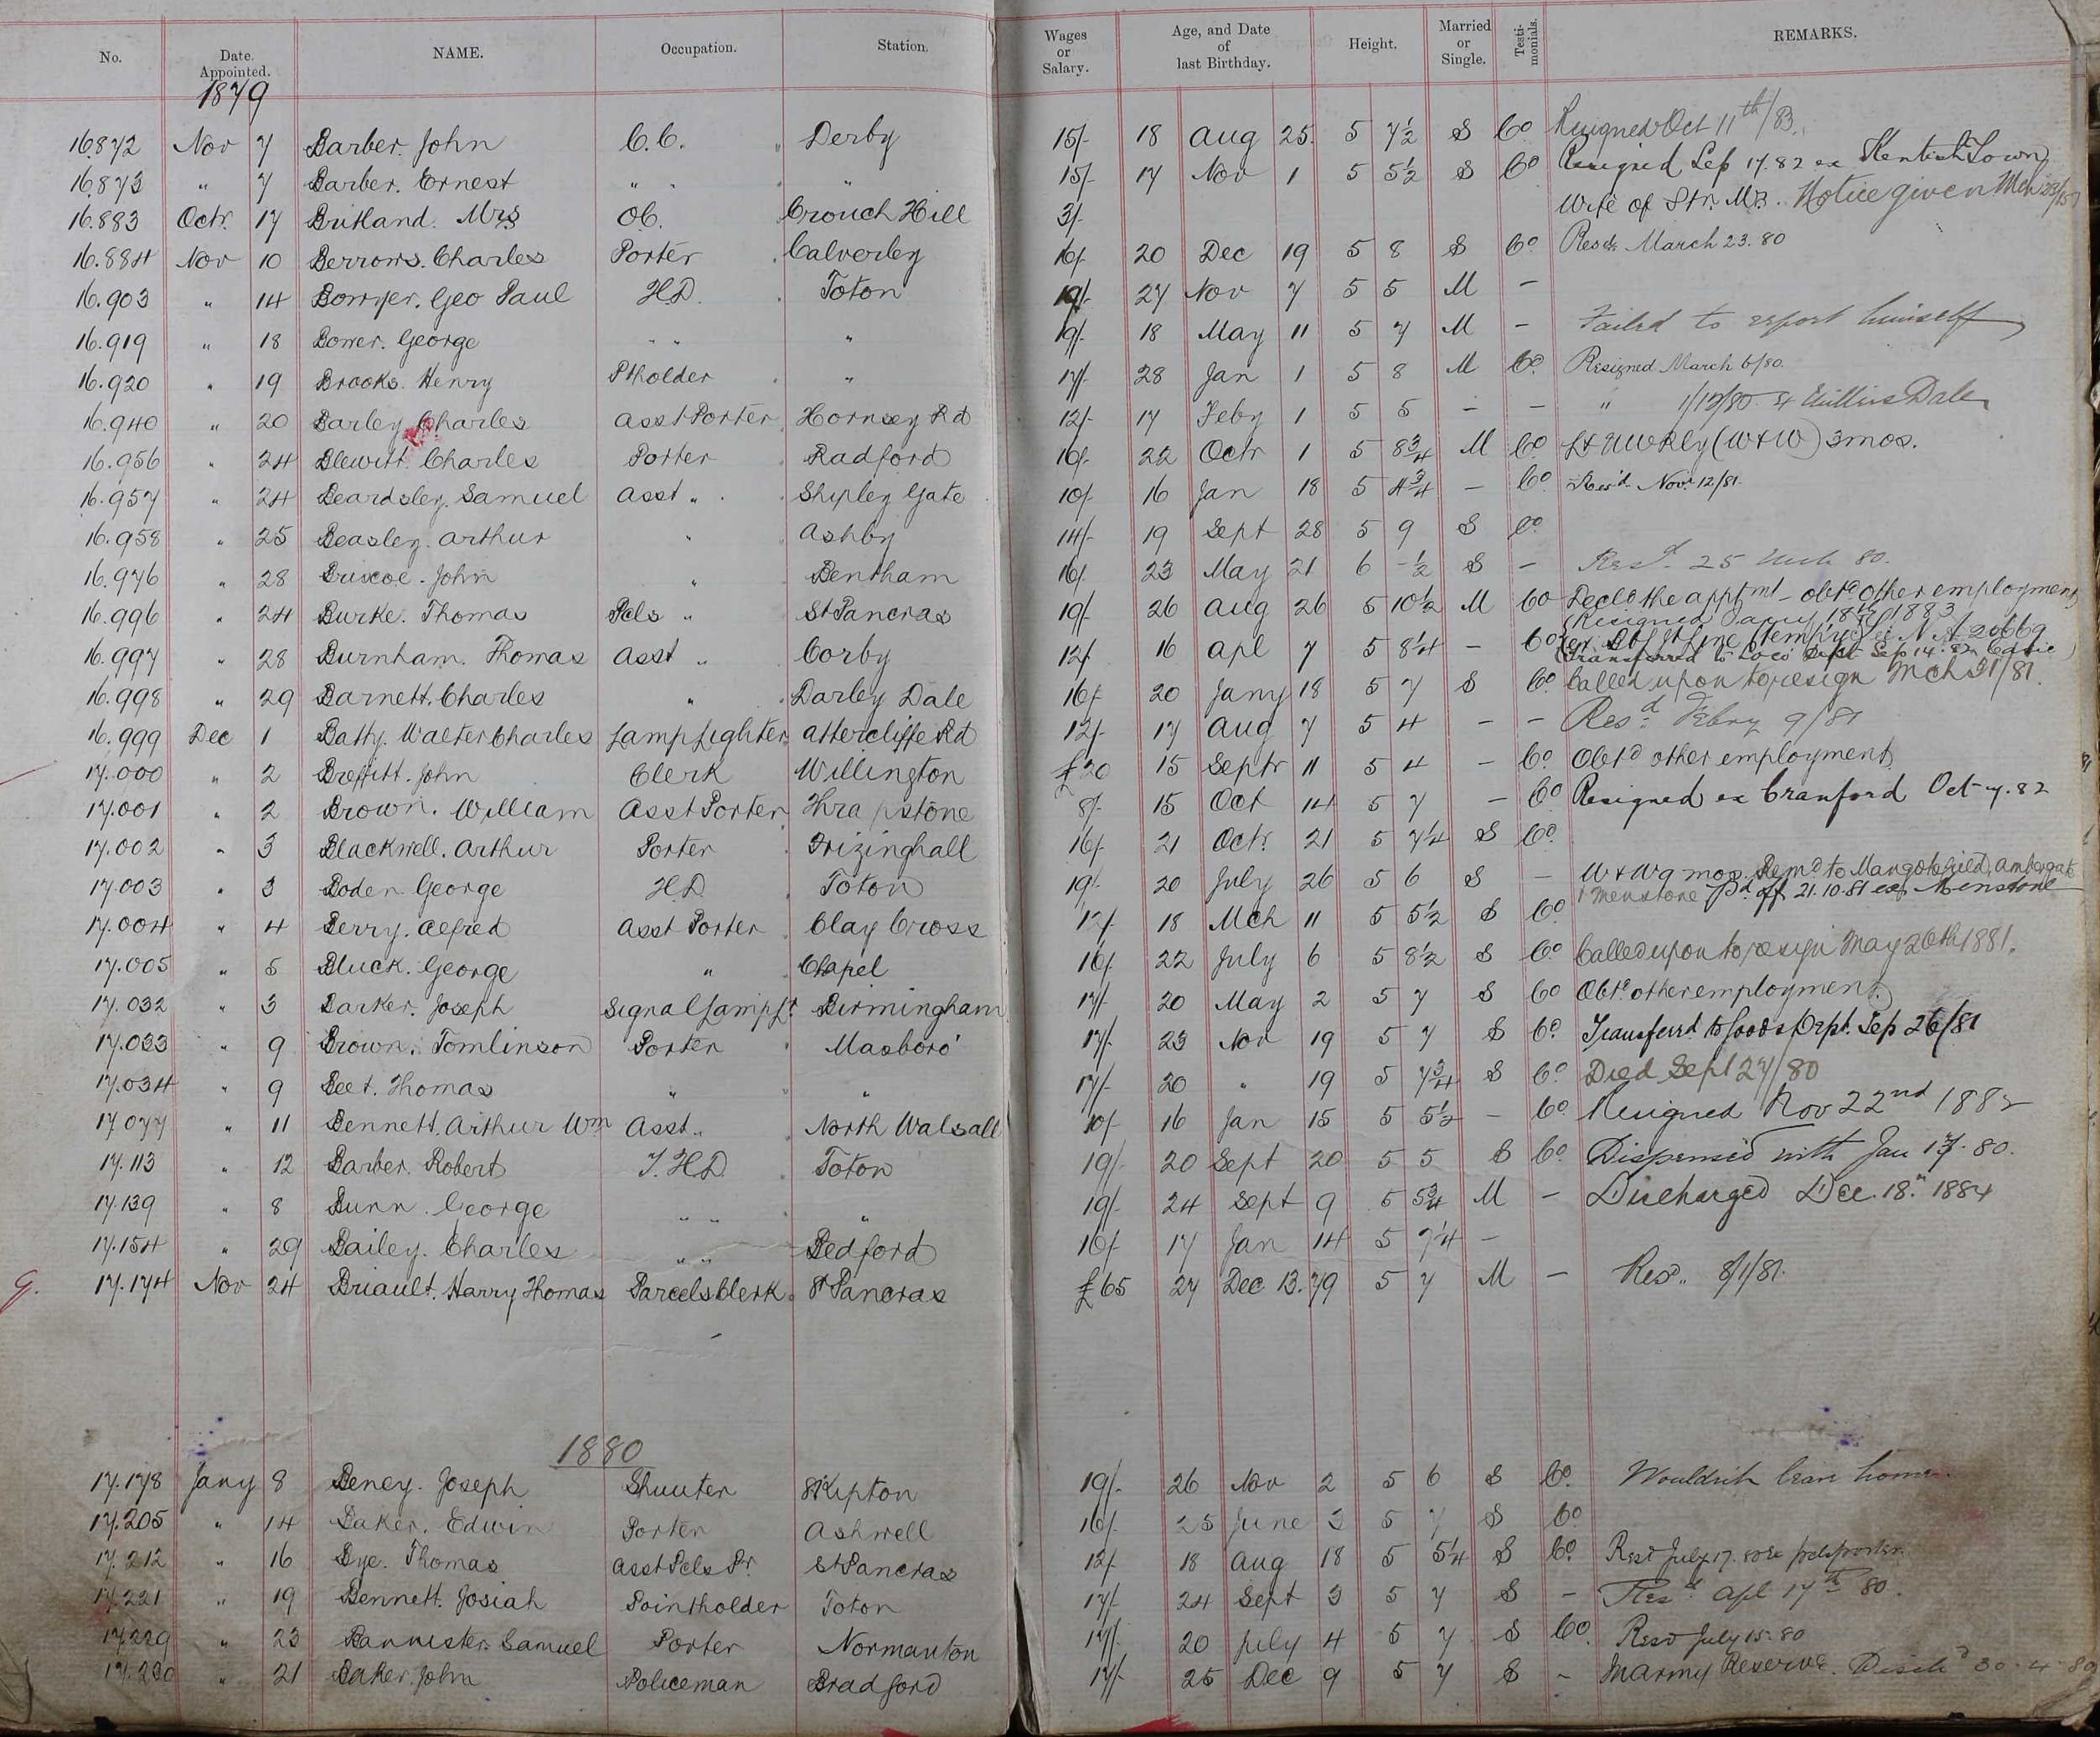 No. Date. Appointed. NAME. Occupation. Station. Wages or Salary. Age, and Date of last Birthday. Height. Married or Single. Testi-monials. REMARKS.
1879
16.872 Nov 7 Barber. John C.C. Derby 15/- 18 Aug 25. 5 7½ S Co Resigned Oct 11th/83.
16.873 " 7 Barber. Ernest " " " 15/- 17 Nov 1 5 5½ S Co Resigned Sep 17.82 ex Kentish Town
16.883 Octr. 17 Britland. Mrs O.C. Crouch Hill 3/- Wife of Str. Mr B. Notice given Mch
16.884 Nov 10 Berrows. Charles Porter Calverley 16/- 20 Dec 19 5 8 S Co Resd. March 23.80
16.903 " 14 Bowyer. Geo Paul H.D. Toton 19/- 27 Nov 7 5 5 M -
16.919 " 18 Bower. George " " " 19/- 18 May 11 5 7 M - Failed to report himself
16.920 " 19 Brooks. Henry Ptholder " 17/- 28 Jan 1 5 8 M Co. Resigned March 6/80.
16.940 " 20 Barley Charles Asst Porter Hornsey Rd 12/- 17 Feby 1 5 5 - - " 1/12/80 Millers Dale
16.956 " 24 Blewitt Charles Porter Radford 16/- 22 Octr 1 5 8¾ M Co (W&W) 3 mos.
16.957 " 24 Beardsley. Samuel Asst " Shipley Gate 10/- 16 Jan 18 5 4¾ - Co. Res'd. Nov. 12/81.
16.958 " 25 Beasley. Arthur " Ashby 14/- 19 Sept 28 5 9 S Co.
16.976 " 28 Briscoe. John " Bentham 16/- 23 May 21 6 -½ S - Resd. 25 Mch 80.
16.996 " 24 Burke. Thomas Pcls " St Pancras 19/- 26 Aug 26 5 10½ M Co Decld the apptmt - obtd other employment
Resigned 18th/1883
16.997 " 28 Burnham. Thomas Asst " Corby 12/- 16 Apl 7 5 8¼ - Co
Transferred to Loco Dept Sep 14.82
16.998 " 29 Barnett. Charles " Darley Dale 16/- 20 Jany 18 5 7 S Co. Called upon to resign Mch 31/81.
16.999 Dec 1 Batty. Walter Charles Lamp Lighter Attercliffe Rd 12/- 17 Aug 7 5 4 - - Resd. Febry 9/81
17.000 " 2 Breffitt. John Clerk Willington £20 15 Septr 11 5 4 - Co. Obtd other employment
17.001 " 2 Brown. William Asst Porter Thrapstone 8/- 15 Oct 14 5 7 - Co Resigned ex Cranford Oct 7.82
17.002 " 3 Blackwell. Arthur Porter Frizinghall 16/- 21 Octr. 21 5 7¼ S Co.
17.003 " 3 Boden George H.D. Toton 19/- 20 July 26 5 6 S - W & W 9 mos. Remd to Mangotsfield, Ambergate
17.004 " 4 Berry. Alfred Asst Porter Clay Cross 12/- 18 Mch 11 5 5½ S Co. Menstone Pd. off 21.10.81 ex Menstone
17.005 " 5 Bluck. George " Chapel 16/- 22 July 6 5 8½ S Co. Called upon to resign May 26th 1881.
17.032 " 3 Barker. Joseph Signal Lamp Lr Birmingham 17/- 20 May 2 5 7 S Co Obtd. other employment.
17.033 " 9 Brown. Tomlinson Porter Masboro' 17/- 23 Nov 19 5 7 S Co. Transferrd to Goods Dept. Sep 26/81
17.034 " 9 Beet. Thomas " " 17/- 20 " 19 5 7¾ S Co. Died Sept 27/80
17.077 " 11 Bennett. Arthur Wm Asst " North Walsall 10/- 16 Jan 15 5 5½ - Co. Resigned Nov 22nd 1882
17.113 " 12 Barber. Robert T.H.D. Toton 19/- 20 Sept 20 5 5 S Co. Dispensed with Jan 17.80.
17.139 " 8 Bunn. George " " " 19/- 24 Sept 9 5 5¾ M - Discharged Dec. 18. 1884
17.154 " 29 Bailey. Charles " " Bedford 16/- 17 Jan 14 5 7¼ -
G. 17.174 Nov 24 Briault. Harry Thomas Parcels Clerk St Pancras £65 27 Dec 13.79 5 7 M - Resd. 8/1/81.
1880
17.178 Jany 8 Beney. Joseph Shunter Skipton 19/- 26 Nov 2 5 6 S Co. Wouldnt leave home.
17.205 " 14 Baker. Edwin Porter Ashwell 16/- 25 June 3 5 7 S Co
17.212 " 16 Bye. Thomas Asst Pcls Pr. St Pancras 12/- 18 Aug 18 5 5¼ S Co. Resd July 17.80
17.221 " 19 Bennett. Josiah Pointholder Toton 17/- 24 Sept 3 5 7 S - Resd. Apl 17th 80.
17.229 " 23 Bannister. Samuel Porter Normanton 17/- 20 July 4 5 7 S Co. Resd July 15.80
17.230 " 21 Baker. John Policeman Bradford 17/- 25 Dec 9 5 7 S - In Army Reserve. Disch'd 30.4.80